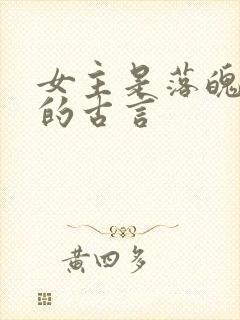 女主是落魄
的古言
黄四多